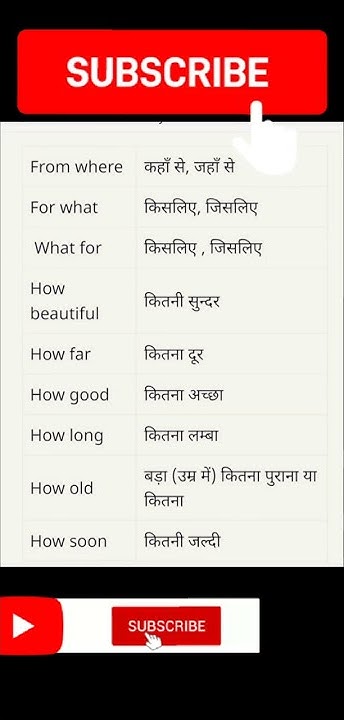 SUBSCRIBE
From where कहाँ से, जहाँ से
For what किसलिए, जिसलिए
What for किसलिए , जिसलिए
How
beautiful
कितनी सुन्दर
How far कितना दूर
How good कितना अच्छा
How long कितना लम्बा
How old
बड़ा (उम्र में) कितना पुराना या
कितना
How soon कितनी जल्दी
SUBSCRIBE